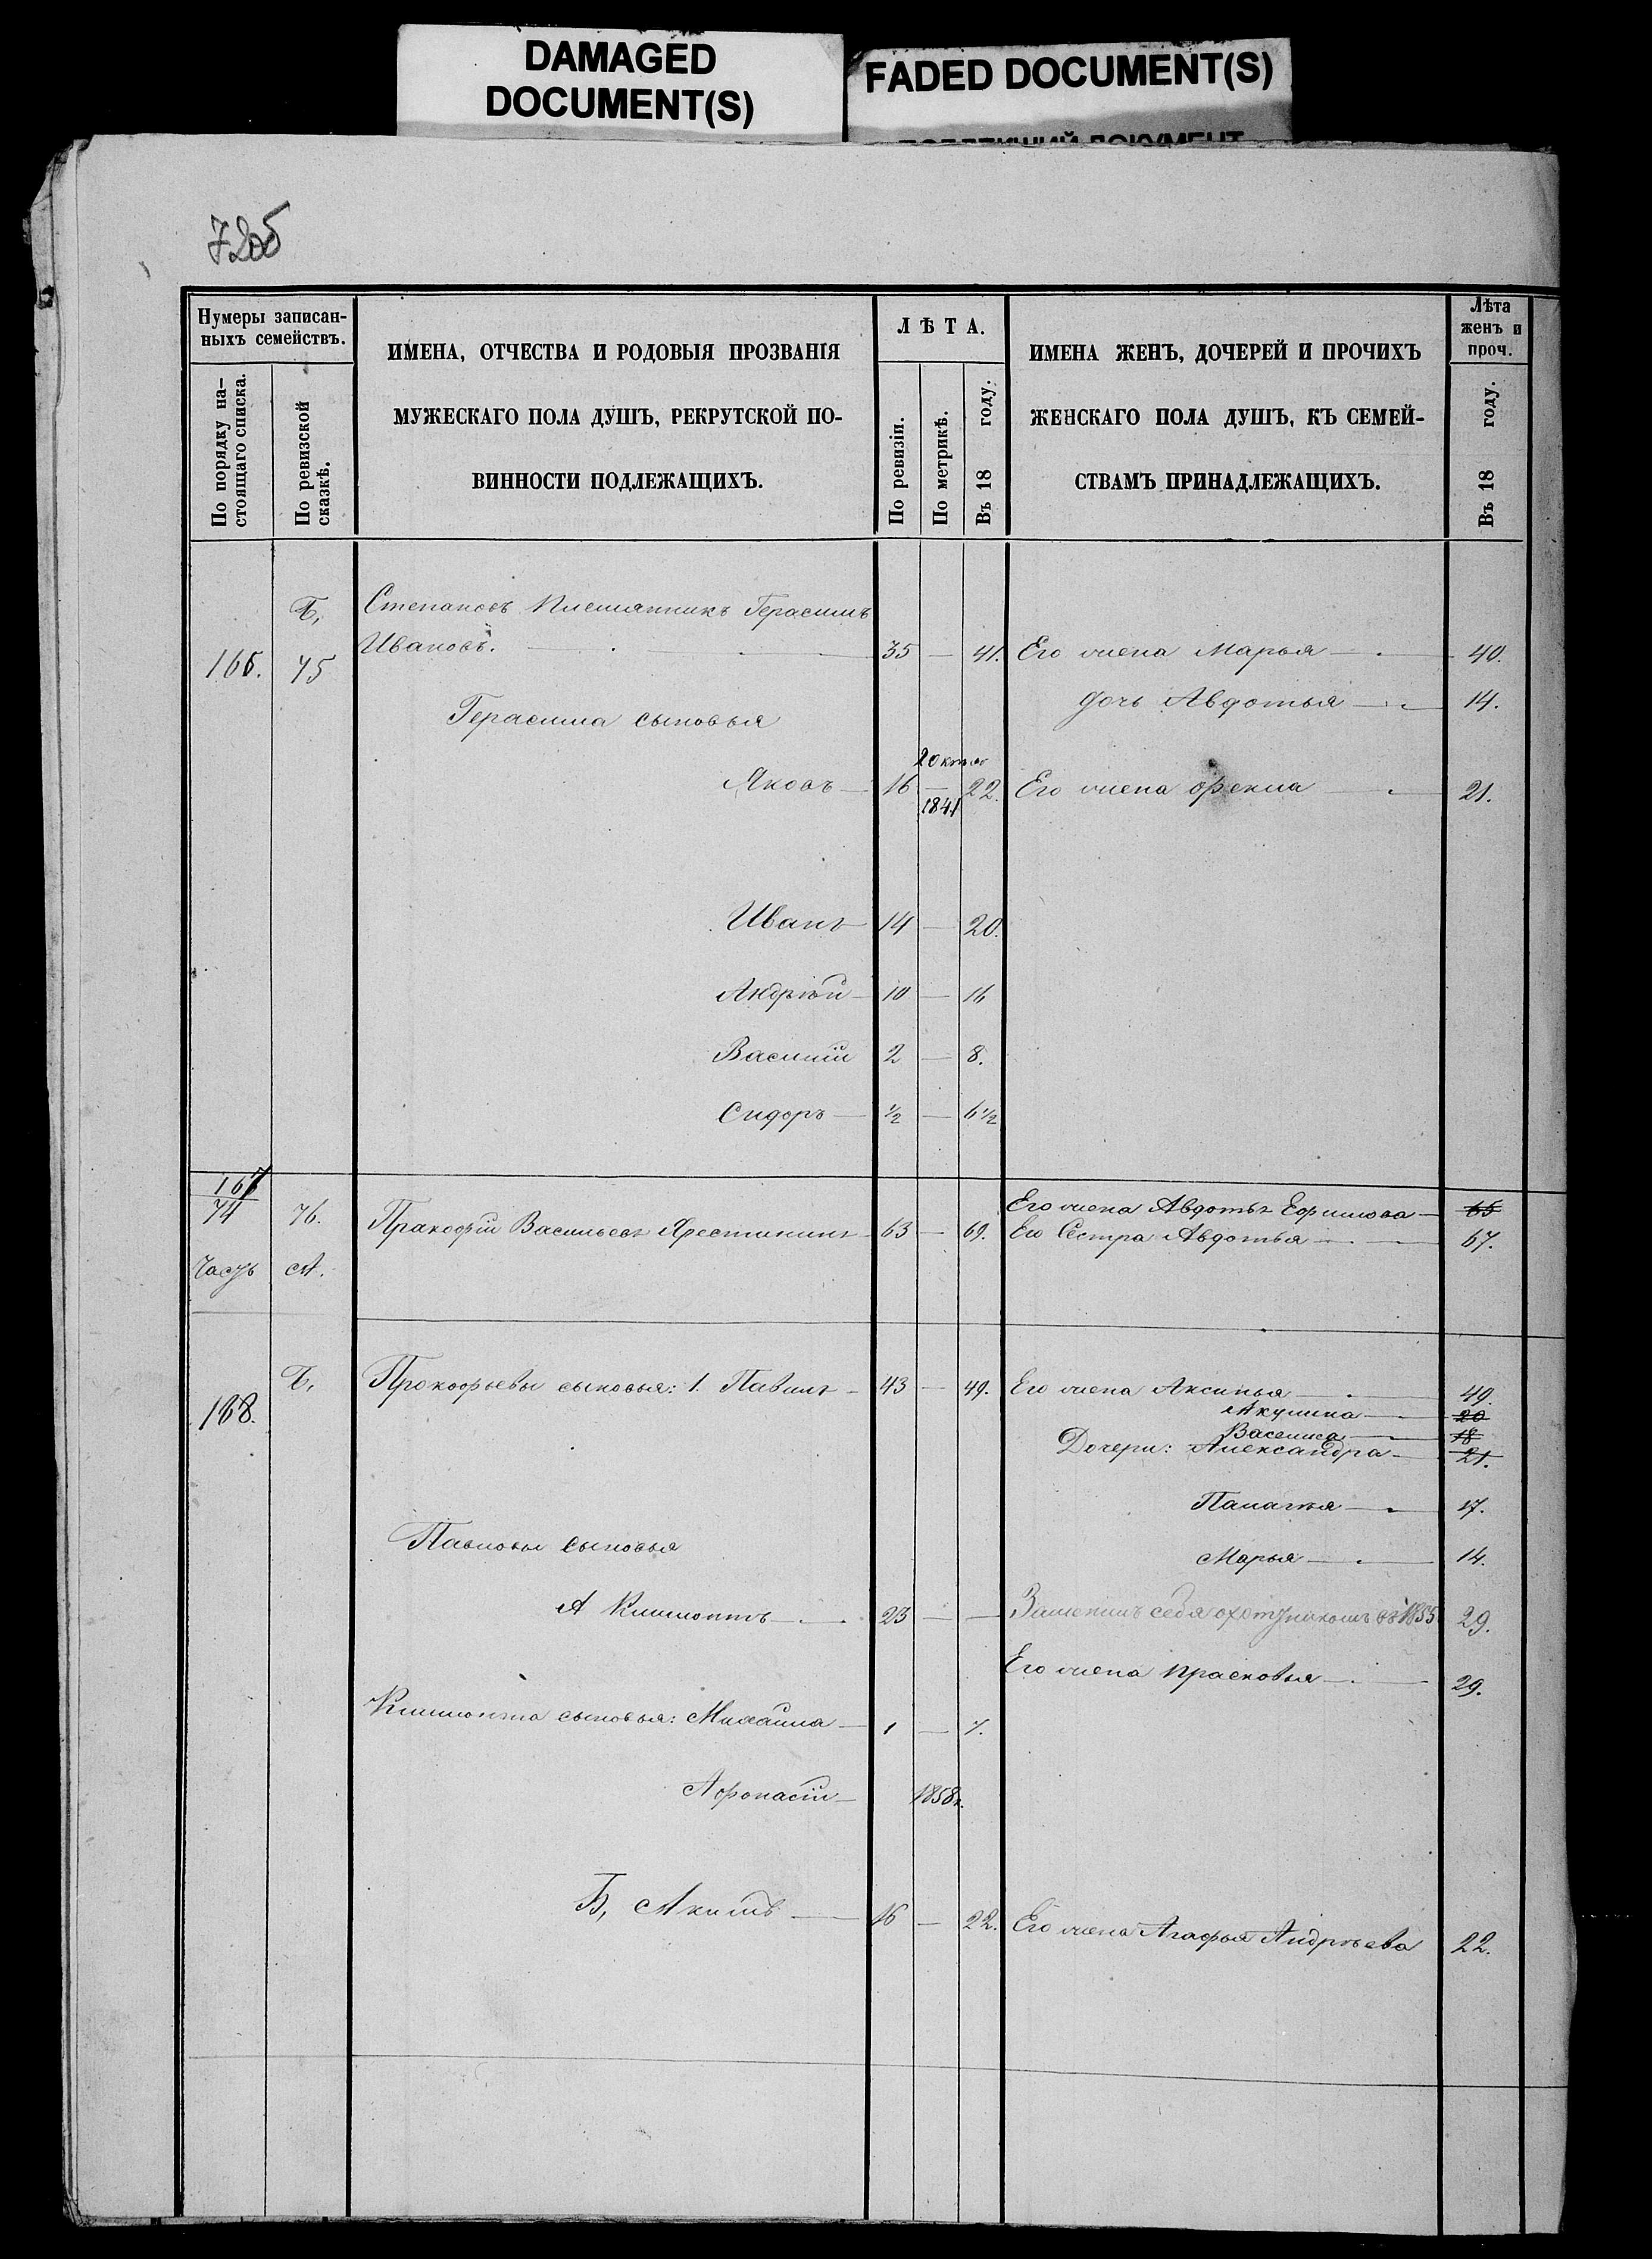 DAMAGED
DOCUMENT(S)
FADED DOCUMENT(S)
720б
Нумеры записан-
ныхъ семействъ.
По порядку на-
стоящаго списка.
По ревизской
сказкѣ.
ИМЕНА, ОТЧЕСТВА И РОДОВЫЯ ПРОЗВАНІЯ
МУЖЕСКАГО ПОЛА ДУШЪ, РЕКРУТСКОЙ ПО-
ВИННОСТИ ПОДЛЕЖАЩИХЪ.
ЛѢТА.
По ревизіи.
По метрикѣ.
Въ 18 году.
ИМЕНА ЖЕНЪ, ДОЧЕРЕЙ И ПРОЧИХЪ
ЖЕНСКАГО ПОЛА ДУШЪ, КЪ СЕМЕЙ-
СТВАМЪ ПРИНАДЛЕЖАЩИХЪ.
Лѣта
женъ и
проч.
Въ 18 году.
Б, Степановъ племянникъ Герасимъ
166. 75 Ивановъ. 35 — 41. Его жена Марья 40.
дочь Авдотья 14.
Герасима сыновья
Яковъ 16 — 1841 22. Его жена Фекла 21.
Иванъ 14 — 20.
Андрѣй 10 — 16
Василій 2 — 8.
Сидоръ ½ — 6½
167
74 76. Пракофій Васильевъ Хрестининъ 63 — 69. Его жена Авдотья Ефимова 65
Его Сестра Авдотья 67.
Часть А.
Б, Прокофьевы сыновья: 1. Павилъ 43 — 49. Его жена Аксинья 49.
168.
Акулина 20
Василиса 18
Дочери: Александра 21.
Палагѣя 17.
Марья 14.
Павловы сыновья
А Климонтъ 23 — — Замѣнилъ себя охотникомъ въ 1855 29.
Его жена Прасковья 29.
Климонта сыновья: Михаила 1 — 7.
Афонасій 1858г.
Б, Акимъ 16 — 22. Его жена Агафья Андрѣева 22.